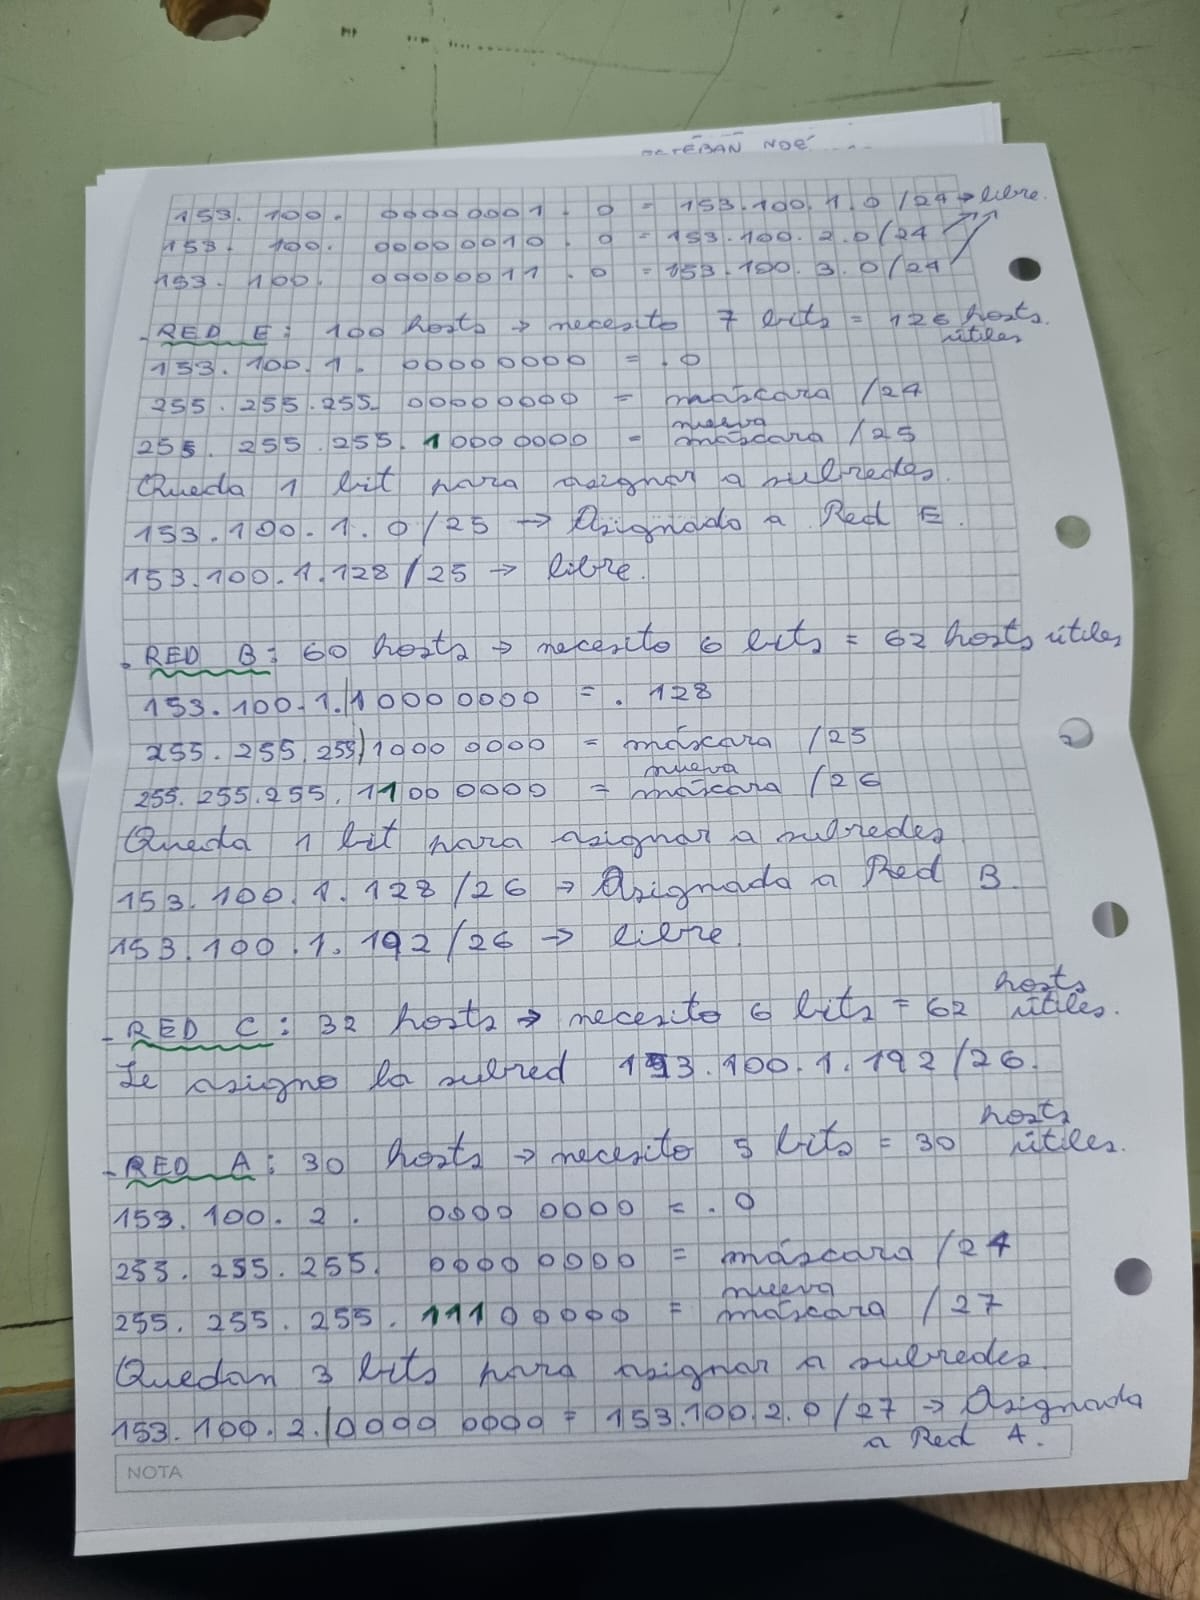 ESTEBAN NOÉ
153. 100. 00000001 . 0 = 153.100.1.0/24 → libre.
153. 100. 00000010 . 0 = 153.100.2.0/24
153. 100. 00000011 . 0 = 153.100.3.0/24
- RED E: 100 hosts → necesito 7 bits = 126 hosts útiles
153. 100. 1. 00000000 = .0
255. 255. 255. 00000000 = máscara /24
255. 255. 255. 10000000 = nueva máscara /25
Queda 1 bit para asignar a subredes.
153.100.1.0/25 → Asignado a Red E.
153.100.1.128/25 → libre.
. RED B: 60 hosts → necesito 6 bits = 62 hosts útiles
153.100.1.|10000000 = .128
255.255.255|1000 0000 = máscara /25
255.255.255.1100 0000 = nueva máscara /26
Queda 1 bit para asignar a subredes
153.100.1.128/26 → Asignada a Red B.
153.100.1.192/26 → libre.
- RED C: 32 hosts → necesito 6 bits = 62 hosts útiles.
Le asigno la subred 153.100.1.192/26.
- RED A: 30 hosts → necesito 5 bits = 30 hosts útiles.
153. 100. 2. 0000 0000 = .0
255. 255. 255. 0000 0000 = máscara /24
255. 255. 255. 11100000 = nueva máscara /27
Quedan 3 bits para asignar a subredes.
153.100.2.|0000 0000 = 153.100.2.0/27 → Asignada a Red A.
NOTA